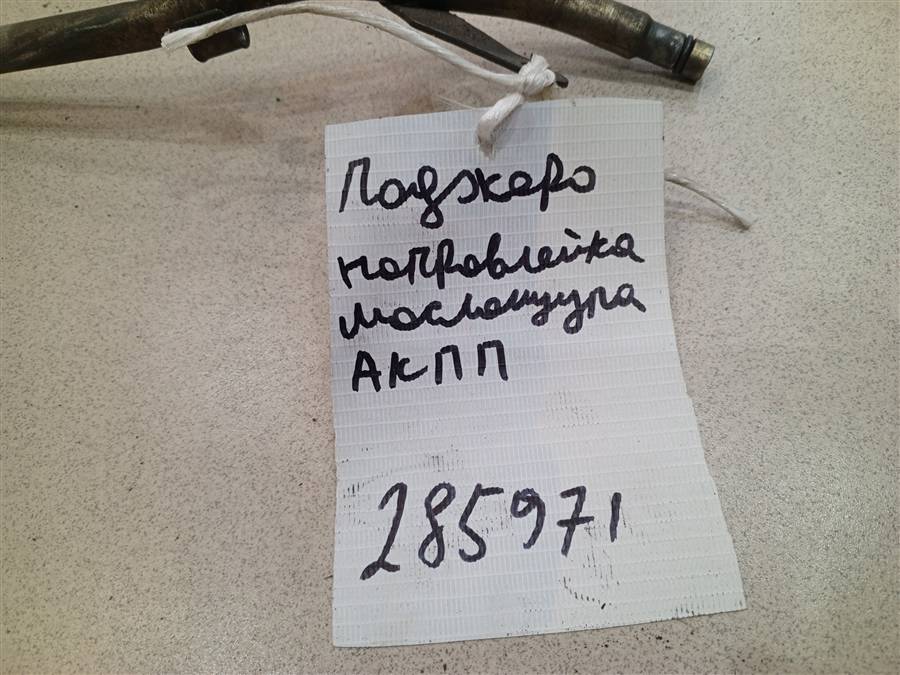 Паджеро
направлейка
маслощупа
АКПП
285971